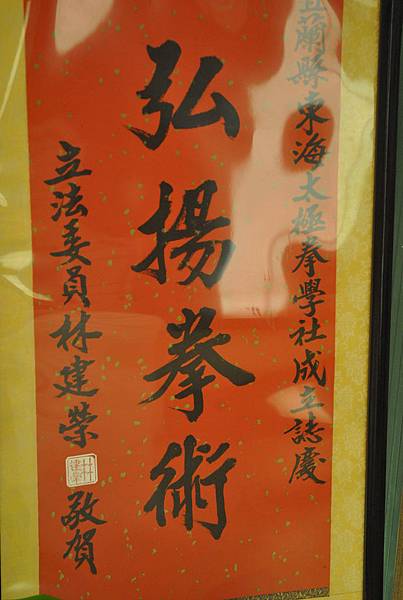 宜蘭縣東海太極拳學社成立誌慶
弘揚拳術
立法委員林建榮 敬賀